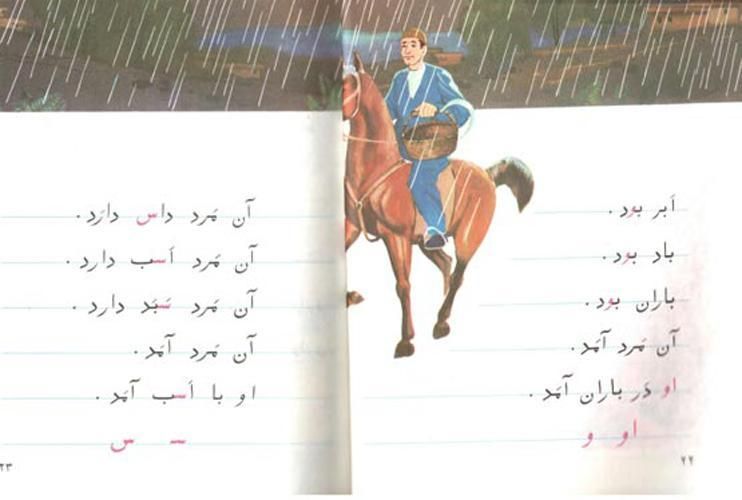 اَبر بود.
باد بود.
باران بود.
آن مَرد آمَد.
او دَر باران آمَد.
او و
۲۲
آن مَرد داس دارَد.
آن مَرد اَسب دارد.
آن مَرد سَبَد دارد.
آن مَرد آمَد.
او با اَسب آمَد.
سـ س
۲۳